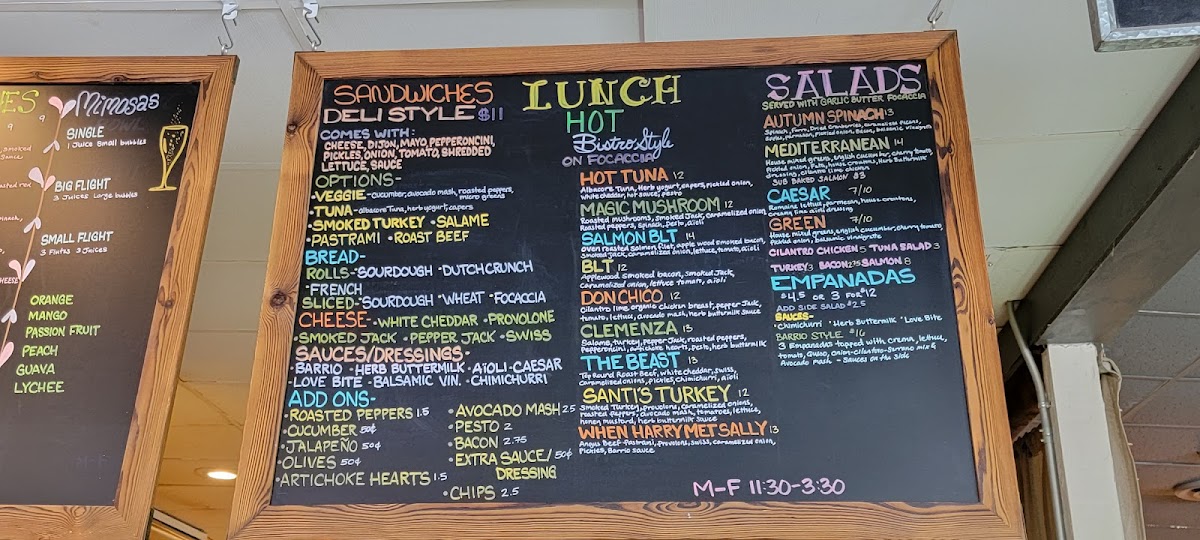 ES
Mimosas
9
9
SINGLE
1 Juice Small bubbles
smoked
Sauce
BIG FLIGHT
3 Juices Large bubbles
SMALL FLIGHT
3 Flutes 3 Juices
CHEESE
ORANGE
MANGO
PASSION FRUIT
PEACH
GUAVA
LYCHEE
LUNCH
SANDWICHES
DELI STYLE $11
COMES WITH:
CHEESE, DIJON, MAYO, PEPPERONCINI,
PICKLES, ONION, TOMATO, SHREDDED
LETTUCE, SAUCE
OPTIONS-
-VEGGIE-cucumber, avocado mash, roasted peppers,
micro greens
-TUNA-albacore Tuna, herb yogurt, capers
-SMOKED TURKEY •SALAME
•PASTRAMI •ROAST BEEF
BREAD-
ROLLS-•SOURDOUGH •DUTCH CRUNCH
•FRENCH
SLICED-•SOURDOUGH •WHEAT •FOCACCIA
CHEESE-•WHITE CHEDDAR •PROVOLONE
•SMOKED JACK •PEPPER JACK •SWISS
SAUCES/DRESSINGS-
•BARRIO •HERB BUTTERMILK •AiOLI •CAESAR
•LOVE BITE •BALSAMIC VIN. •CHIMICHURRI
ADD ONS-
•ROASTED PEPPERS 1.5
•CUCUMBER 50¢
•JALAPEÑO 50¢
•OLIVES 50¢
•ARTICHOKE HEARTS 1.5
•AVOCADO MASH 2.5
•PESTO 2
•BACON 2.75
•EXTRA SAUCE/ 50¢
DRESSING
•CHIPS 2.5
HOT
Bistro Style
ON FOCACCIA
HOT TUNA 12
Albacore Tuna, Herb yogurt, capers, pickled onion,
white cheddar, hot sauce, pesto
MAGIC MUSHROOM 12
Roasted mushrooms, smoked Jack, caramelized onion,
Roasted peppers, Spinach, pesto, aioli
SALMON BLT 14
oven roasted Salmon, filet, apple wood smoked bacon,
Smoked Jack, caramelized onion, lettuce, tomato, aioli
BLT 12
Applewood smoked bacon, Smoked Jack,
Caramelized onion, lettuce tomato, aioli
DON CHICO 12
Cilantro lime organic chicken breast, pepper Jack,
tomato, lettuce, avocado mash, herb buttermilk sauce
CLEMENZA 13
Salame, turkey, pepper Jack, roasted peppers,
Pepperoncini, artichoke hearts, pesto, herb buttermilk
THE BEAST 13
Top Round Roast Beef, white cheddar, swiss,
Caramelized onions, pickles, chimichurri, aioli
SANTI'S TURKEY 12
Smoked Turkey, provolone, caramelized onions,
roasted peppers, avocado mash, tomatoes, lettuce,
honey mustard, herb buttermilk sauce
WHEN HARRY MET SALLY 13
Angus Beef Pastrami, provolone, swiss, caramelized onion,
Pickles, Barrio sauce
SALADS
SERVED WITH GARLIC BUTTER FOCACCIA
AUTUMN SPINACH 13
Spinach, Farro, Dried Cranberries, caramelized pecans,
apples, parmesan, pickled onion, Bacon, balsamic vinaigrette
MEDITERRANEAN 14
House mixed greens, english cucumber, cherry tomato,
pickled onion, Feta, house croutons, Herb Buttermilk
dressing, cilantro lime chicken
SUB BAKED SALMON $3
CAESAR 7/10
Romaine lettuce, parmesan, house croutons,
creamy lime aioli dressing
GREEN 7/10
House mixed greens, english cucumber, cherry tomato,
pickled onion, balsamic vinaigrette
CILANTRO CHICKEN 5 TUNA SALAD 3
TURKEY 3 BACON 2.75 SALMON 8
EMPANADAS
$4.5 OR 3 FOR $12
ADD SIDE SALAD $2.5
SAUCES-
•Chimichurri •Herb Buttermilk •Love Bite
BARRIO STYLE $16
3 Empanadas topped with crema, lettuce,
tomato, Queso, Onion-Cilantro-Serrano mix &
Avocado mash - SAUCES ON THE SIDE
M-F 11:30-3:30